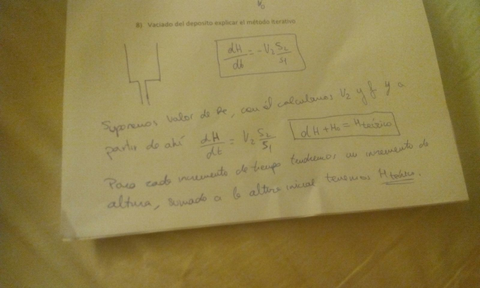 8) Vaciado del deposito explicar el método iterativo.
dH/dt = -V₂ S₂/S₁
Suponemos valor de Re, con él calculamos V₂ y f y a
partir de ahí dH/dt = V₂ S₂/S₁ dH + H₀ = H teórico
Para cada incremento de tiempo tendremos un incremento de
altura, sumado a la altura inicial tenemos H teórico.